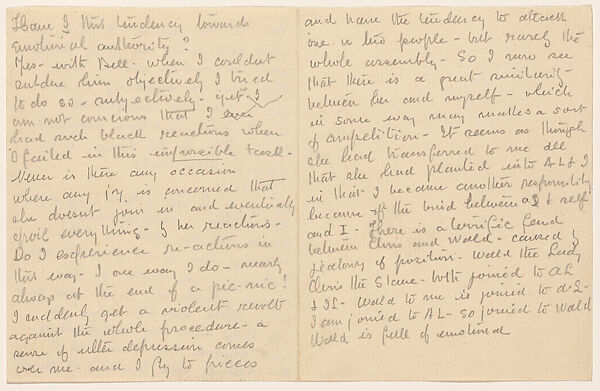 Have I this tendency towards
emotional authority?
Yes - with Dell - when I couldnt
subdue him objectively I tried
to do so - subjectively - yet I
am not conscious that I ever
had such black reactions when
I failed in this impossible task -
Never is there any occasion
where any joy is concerned that
she doesnt join in and eventually
spoil everything - by her reactions -
Do I experience re-actions in
this way - I one way I do - nearly
always at the end of a pic-nic!
I suddenly get a violent revolt
against the whole procedure - a
sense of utter depression comes
over me - and I fly to pieces
and have the tendency to attack
one or two people - but rarely the
whole assembly - So I now see
that there is a great similarity
between her and myself - which
in some way may makes a sort
of competition - It seems as though
she had transferred to me all
that she had planted into AL & I
in that I became another responsibility
because of the bond between & self
and I - There is a terrific feud
between Chris and Wald - caused by
jealousy of position - Wald the Lady
Chris the Slave - both joined to AL
& IL - Wald to me is joined to
I am joined to AL - so joined to Wald
Wald is full of emotional